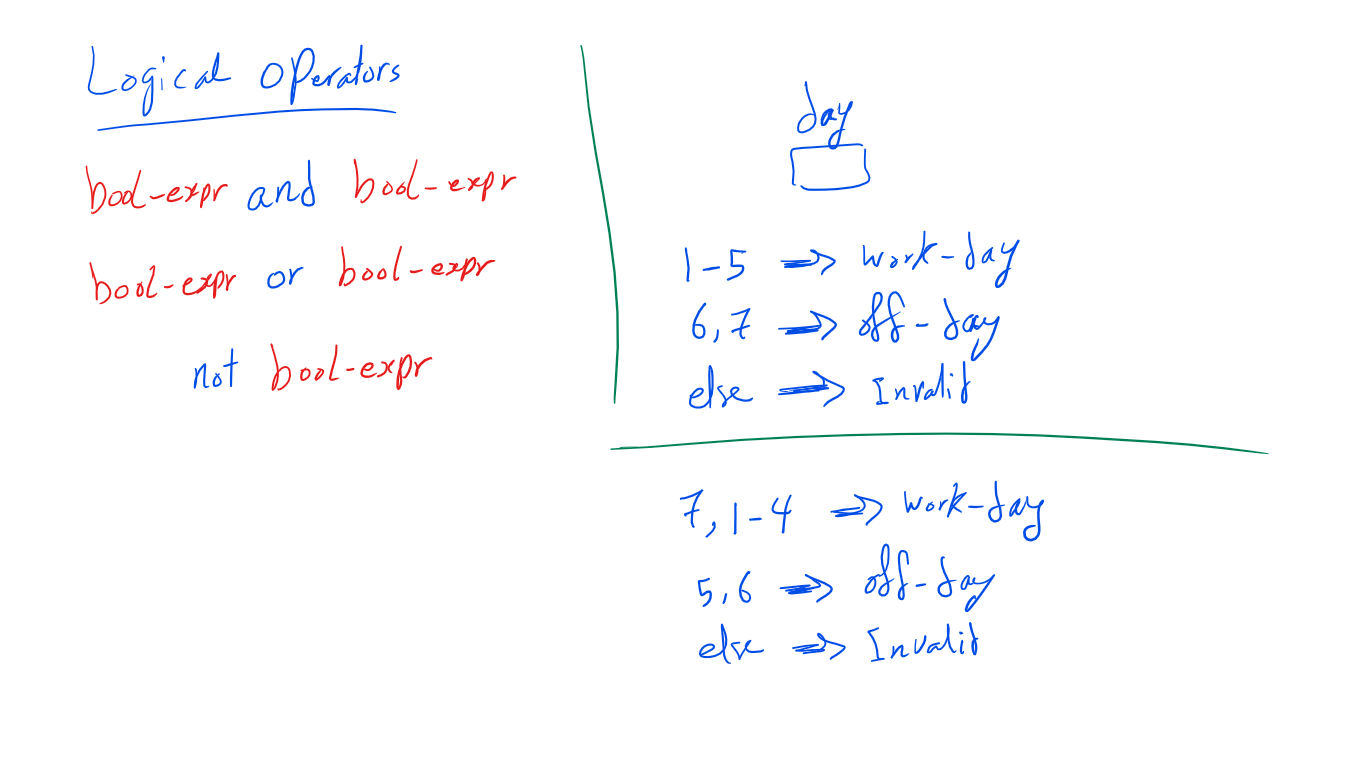 Logical Operators
bool-expr and bool-expr
bool-expr or bool-expr
not bool-expr
day
1-5 => work-day
6,7 => off-day
else => Invalid
7, 1-4 => work-day
5,6 => off-day
else => Invalid